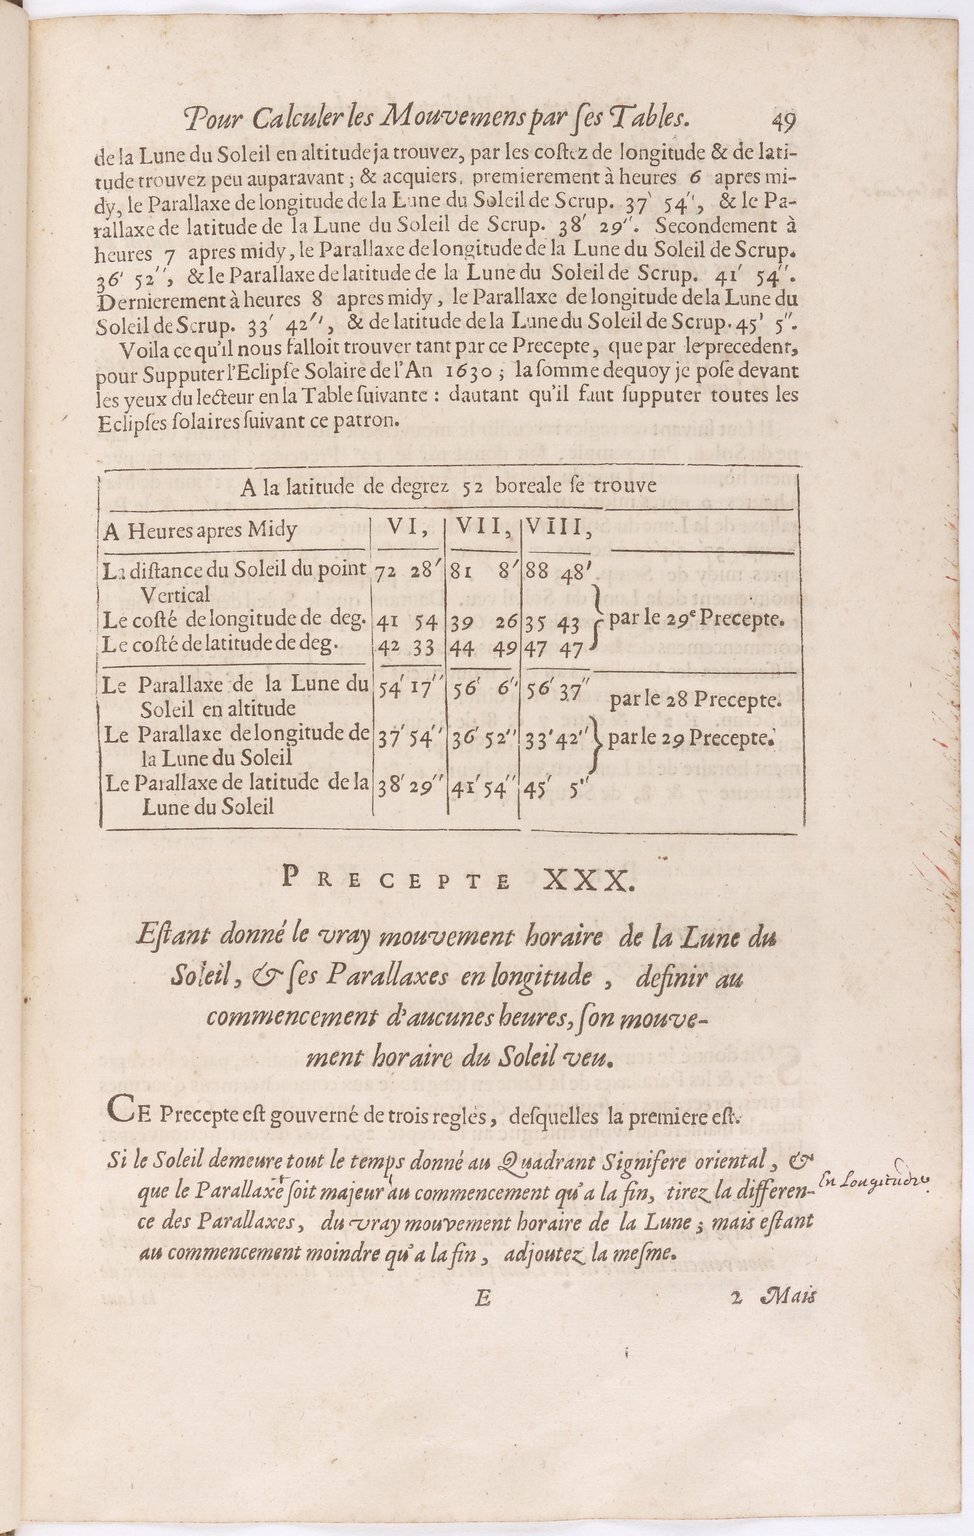 Pour Calculer les Mouvemens par ſes Tables. 49
de la Lune du Soleil en altitude ja trouvez, par les coſtez de longitude & de lati-
tude trouvez peu auparavant ; & acquiers, premierement à heures 6 apres mi-
dy, le Parallaxe de longitude de la Lune du Soleil de Scrup. 37' 54'', & le Pa-
rallaxe de latitude de la Lune du Soleil de Scrup. 38' 29''. Secondement à
heures 7 apres midy, le Parallaxe de longitude de la Lune du Soleil de Scrup.
36' 52'', & le Parallaxe de latitude de la Lune du Soleil de Scrup. 41' 54''.
Dernierement à heures 8 apres midy, le Parallaxe de longitude de la Lune du
Soleil de Scrup. 33' 42'', & de latitude de la Lune du Soleil de Scrup. 45' 5''.
Voila ce qu'il nous falloit trouver tant par ce Precepte, que par le precedent,
pour Supputer l'Eclipſe Solaire de l'An 1630 ; la ſomme dequoy je poſe devant
les yeux du lecteur en la Table ſuivante : dautant qu'il faut ſupputer toutes les
Eclipſes ſolaires ſuivant ce patron.
A la latitude de degrez 52 boreale ſe trouve
A Heures apres Midy VI, VII, VIII,
La diſtance du Soleil du point 72 28' 81 8' 88 48'
Vertical
Le coſté de longitude de deg. 41 54 39 26 35 43 par le 29e Precepte.
Le coſté de latitude de deg. 42 33 44 49 47 47
Le Parallaxe de la Lune du 54' 17'' 56' 6'' 56' 37'' par le 28 Precepte.
Soleil en altitude
Le Parallaxe de longitude de 37' 54'' 36' 52'' 33' 42'' par le 29 Precepte.
la Lune du Soleil
Le Parallaxe de latitude de la 38' 29'' 41' 54'' 45' 5''
Lune du Soleil
PRECEPTE XXX.
Eſtant donné le vray mouvement horaire de la Lune du
Soleil, & ſes Parallaxes en longitude, definir au
commencement d'aucunes heures, ſon mouve-
ment horaire du Soleil veu.
CE Precepte eſt gouverné de trois regles, deſquelles la premiere eſt.
Si le Soleil demeure tout le temps donné au Quadrant Signifere oriental, &
que le Parallaxe ſoit majeur au commencement qu'a la fin, tirez la differen- En Longitudre
ce des Parallaxes, du vray mouvement horaire de la Lune ; mais eſtant
au commencement moindre qu'a la fin, adjoutez la meſme.
E 2 Mais